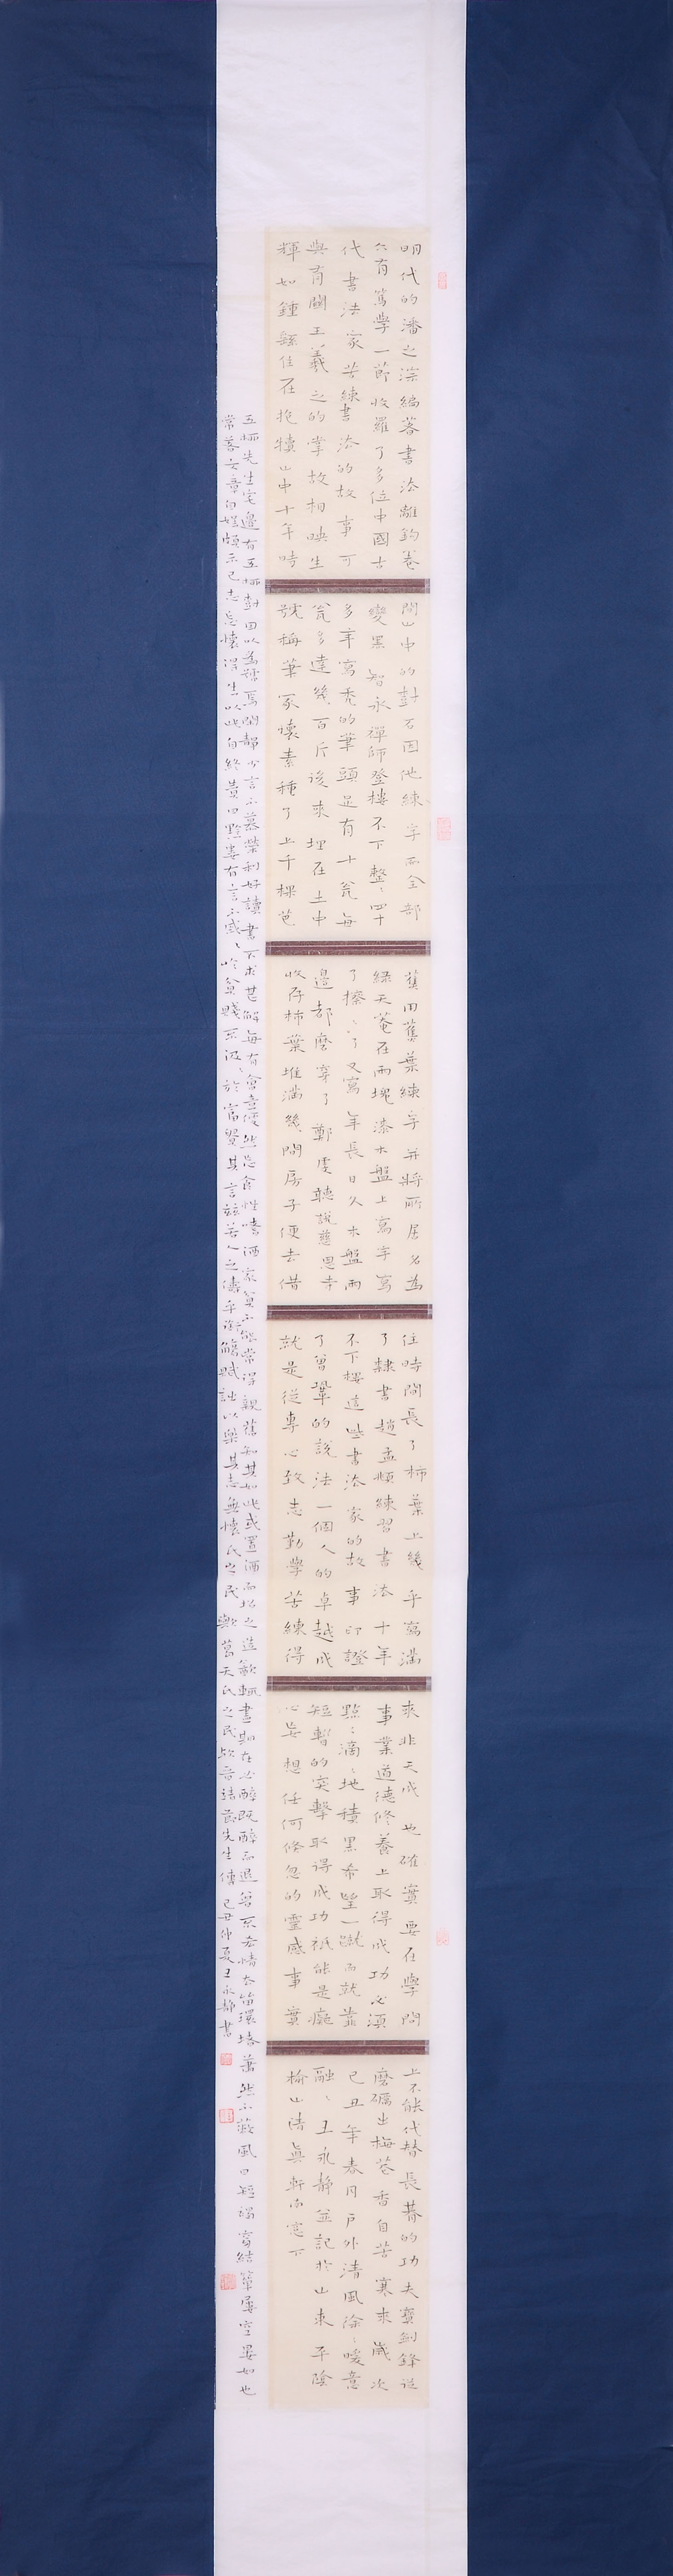 明代的潘之淙編著書法離鈎卷
六有篤學一節收羅了多位中國古
代書法家苦練書法的故事可
與有關王羲之的掌故相映生
輝如鍾繇住在抱犢山中十年時
間山中的樹石因他練字而全部
變黑智永禪師登樓不下整整四十
多年寫禿的筆頭足有十瓮每
瓮多達幾百斤後來埋在土中
號稱筆冢懷素種了上千棵芭
蕉用蕉葉練字并將所居名為
綠天菴在兩塊漆木盤上寫字寫
了擦擦了又寫年長日久木盤兩
邊都磨穿了鄭虔聽說慈恩寺
收存柿葉堆滿幾間房子便去借
住時間長了柿葉上幾乎寫滿
了隸書趙孟頫練習書法十年
不下樓這些書法家的故事印證
了曾鞏的說法一個人的卓越成
就是從專心致志勤學苦練得
來非天成也確實要在學問
事業道德修養上取得成功必須
點點滴滴地積累希望一蹴而就靠
短暫的突擊取得成功祇能是癡
心妄想任何倏忽的靈感事實
上不能代替長期的功夫寶劍鋒從
磨礪出梅花香自苦寒來歲次
己丑年春月戶外清風徐徐暖意
融融王永靜並記於山東平陰
榆山清真軒南窓下
五柳先生宅邊有五柳樹因以為號焉閑靜少言不慕榮利好讀書不求甚解每有會意便然忘食性嗜酒家貧不能常得親舊知其如此或置酒而招之造飲輒盡期在必醉既醉而退曾不吝情去留環堵蕭然不蔽風日短褐穿結簞屢空晏如也
常著文章自娛頗示己志忘懷得失以此自終贊曰黔婁有言不戚戚於貧賤不汲汲於富貴其言茲若人之儔乎銜觴賦詩以樂其志無懷氏之民歟葛天氏之民歟晉靖節先生傳己丑仲夏王永靜書